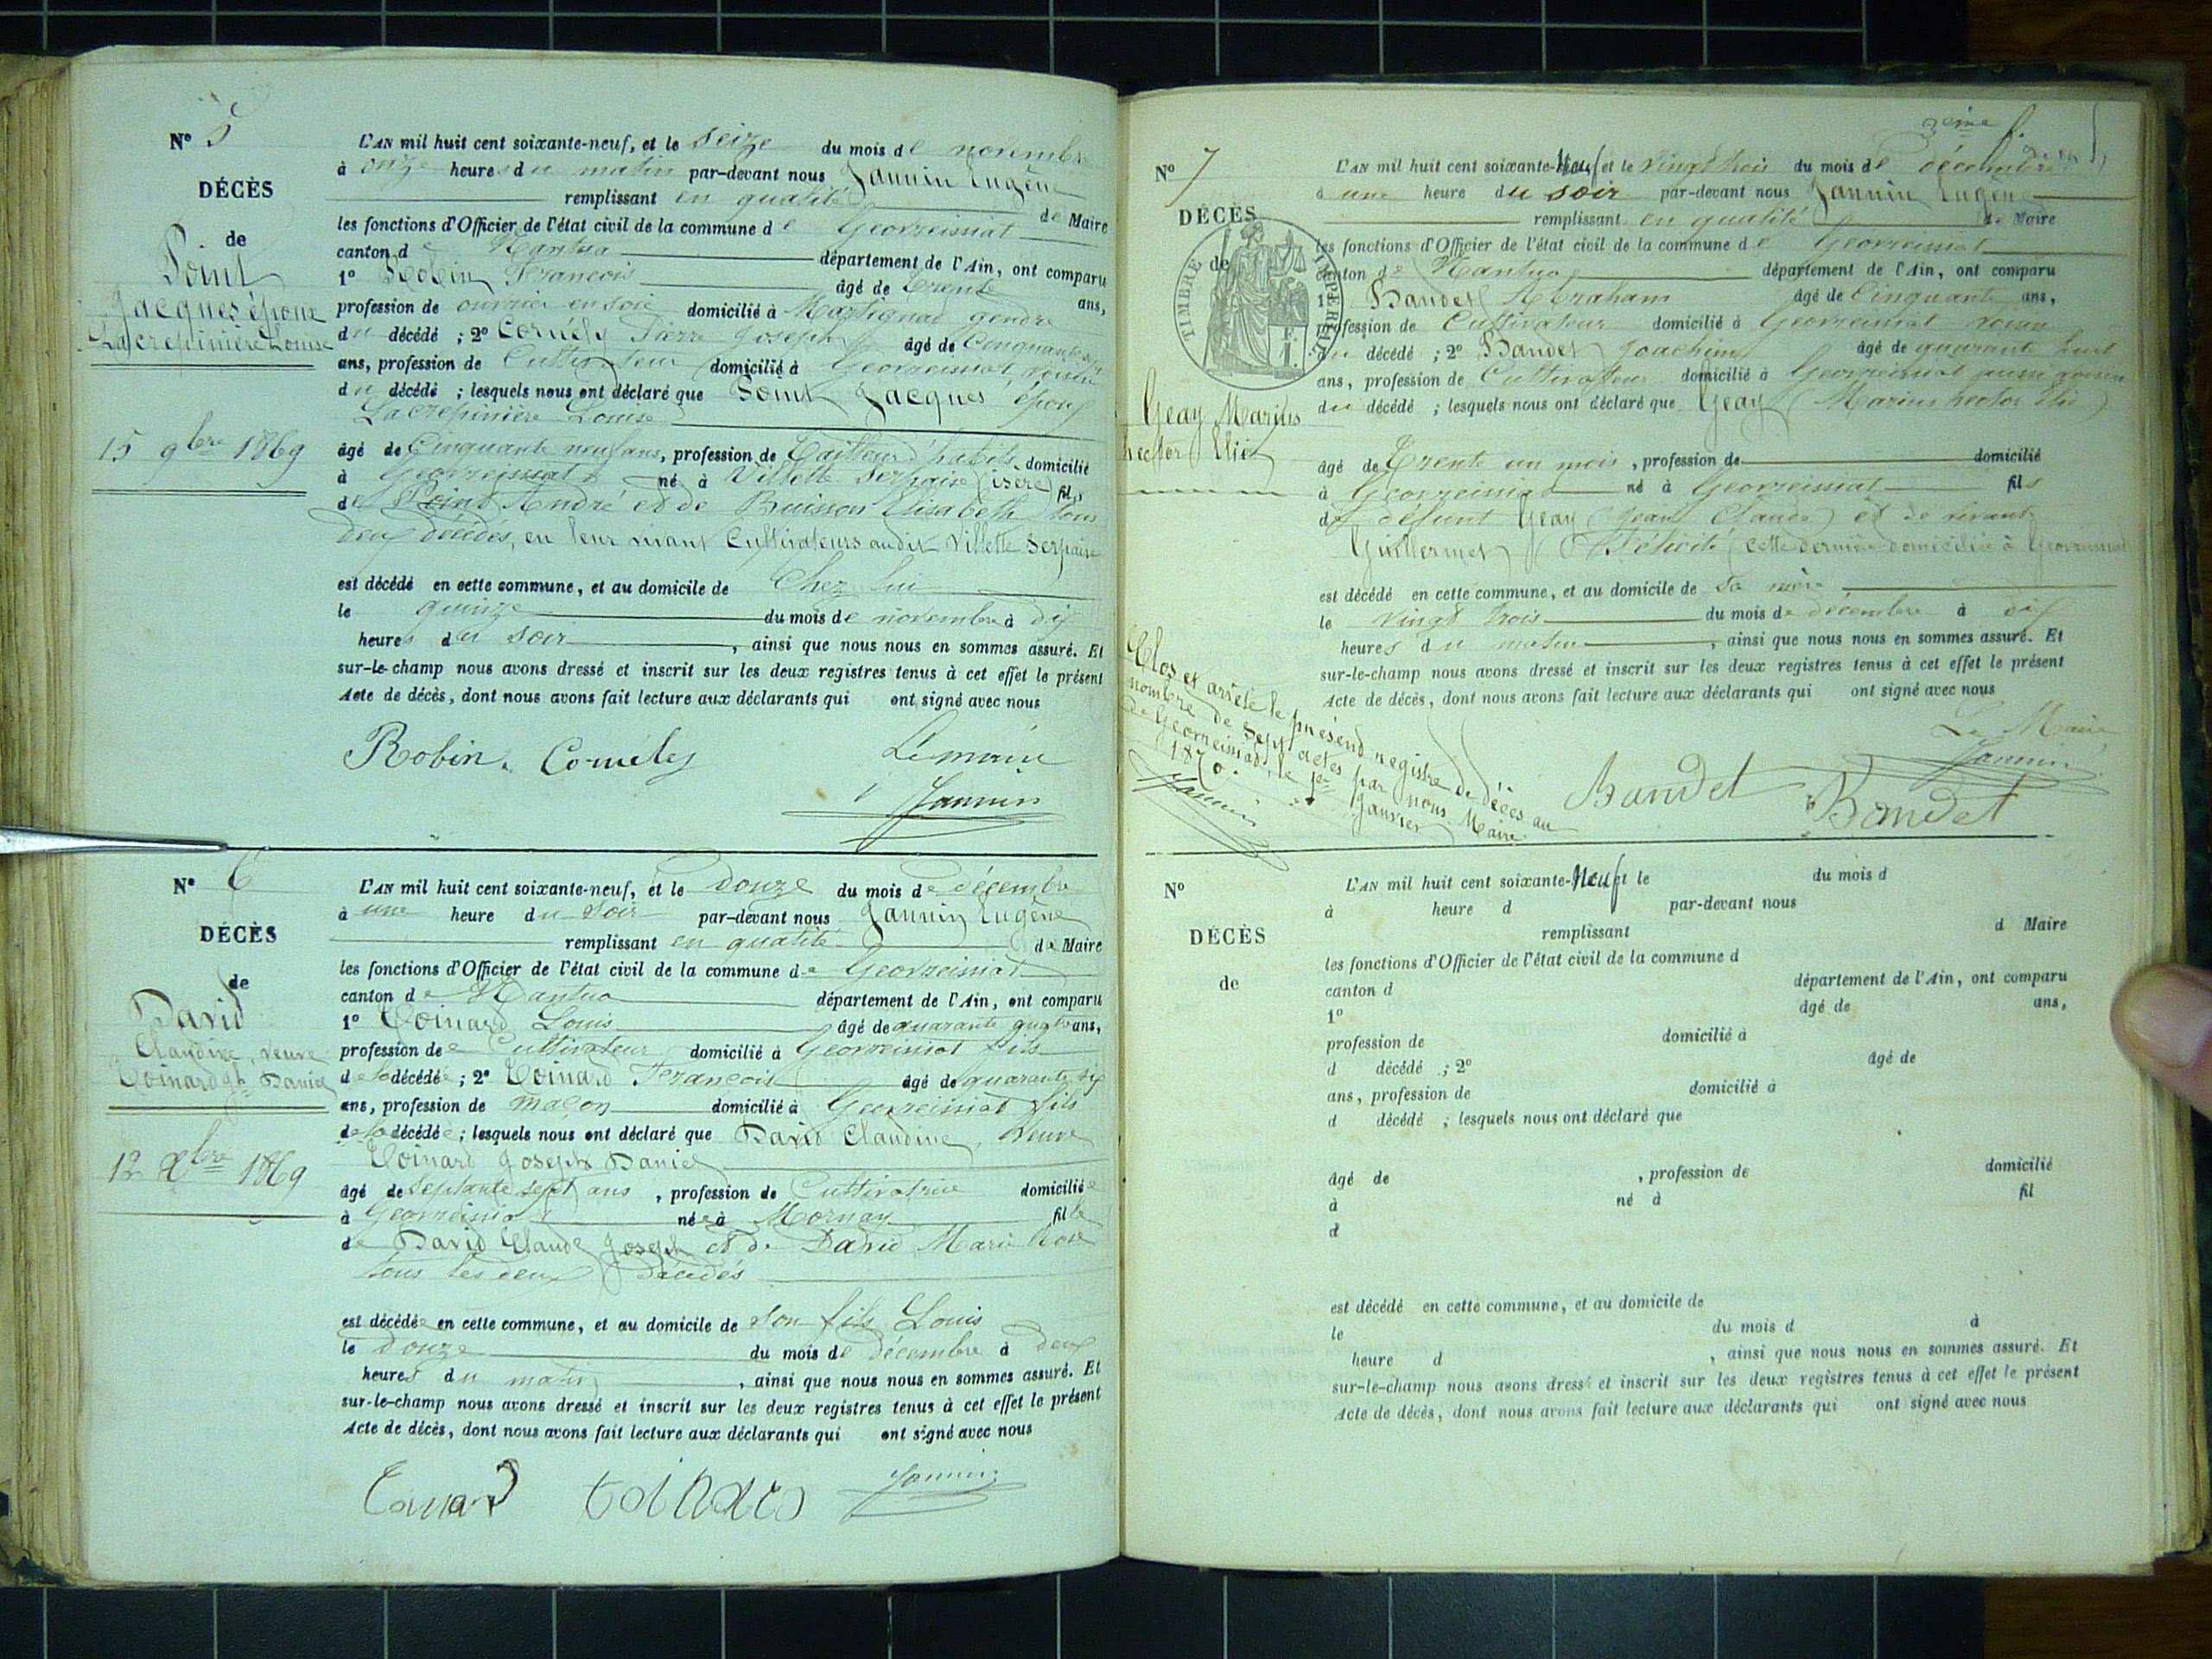 Nº 5
DÉCÈS
de
Point
Jacques époux
Lacrepinière Louise
15 9bre 1869
L'AN mil huit cent soixante-neuf, et le seize du mois de novembre
à onze heures du matin par-devant nous Jannin Eugène
remplissant en qualité de Maire
les fonctions d'Officier de l'état civil de la commune de Geovreissiat
canton de Nantua département de l'Ain, ont comparu
1º Robin François âgé de trente ans,
profession de ouvrier en soie domicilié à Martignat gendre
du décédé ; 2º Cornély Pierre Joseph âgé de Cinquante
ans, profession de Cultivateur domicilié à Geovreissiat, voisin
du décédé ; lesquels nous ont déclaré que Point Jacques époux
Lacrepinière Louise
âgé de Cinquante neuf ans, profession de Tailleur d'habits domicilié
à Geovreissiat né à Villette Serpaize (isère) fils
de Point André et de Buisson Elisabeth tous
deux décédés, en leur vivant Cultivateurs audit Villette Serpaize
est décédé en cette commune, et au domicile de Chez lui
le quinze du mois de novembre à dix
heures du soir, ainsi que nous nous en sommes assuré. Et
sur-le-champ nous avons dressé et inscrit sur les deux registres tenus à cet effet le présent
Acte de décès, dont nous avons fait lecture aux déclarants qui ont signé avec nous
Robin. Cornély Le maire
Jannin
Nº 6
DÉCÈS
de
David
Claudine, veuve
Toinard Jh Daniel
12 Xbre 1869
L'AN mil huit cent soixante-neuf, et le douze du mois de décembre
à une heure du soir par-devant nous Jannin Eugène
remplissant en qualité de Maire
les fonctions d'Officier de l'état civil de la commune de Geovreissiat
canton de Nantua département de l'Ain, ont comparu
1º Toinard Louis âgé de quarante quatre ans,
profession de Cultivateur domicilié à Geovreissiat fils
de la décédée ; 2º Toinard François âgé de quarante six
ans, profession de maçon domicilié à Geovreissiat fils
de la décédée ; lesquels nous ont déclaré que David Claudine, veuve
Toinard Joseph Daniel
âgé de septante sept ans, profession de Cultivatrice domiciliée
à Geovreissiat née à Mornay fille
de David Claude Joseph et de David Marie Rose
tous les deux décédés
est décédée en cette commune, et au domicile de son fils Louis
le douze du mois de décembre à deux
heures du matin, ainsi que nous nous en sommes assuré. Et
sur-le-champ nous avons dressé et inscrit sur les deux registres tenus à cet effet le présent
Acte de décès, dont nous avons fait lecture aux déclarants qui ont signé avec nous
toinard Jannin
3ème f.
Nº 7
DÉCÈS
de
TIMBRE IMPERIAL
Geay Marius
hector Elie
L'AN mil huit cent soixante-Neuf et le vingt trois du mois de décembre
à une heure du soir par-devant nous Jannin Eugène
remplissant en qualité de Maire
les fonctions d'Officier de l'état civil de la commune de Geovreissiat
canton de Nantua département de l'Ain, ont comparu
1º Baudet Abraham âgé de Cinquante ans,
profession de Cultivateur domicilié à Geovreissiat voisin
du décédé ; 2º Baudet Joachim âgé de quarante huit
ans, profession de Cultivateur domicilié à Geovreissiat aussi voisin
du décédé ; lesquels nous ont déclaré que Geay (Marius hector Elie)
âgé de Trente un mois, profession de domicilié
à Geovreissiat né à Geovreissiat fils
de défunt Geay (Jean Claude) et de vivante
Guillermet Félicité (cette dernière domiciliée à Geovreissiat
est décédé en cette commune, et au domicile de sa mère
le vingt trois du mois de décembre à dix
heures du matin, ainsi que nous nous en sommes assuré. Et
sur-le-champ nous avons dressé et inscrit sur les deux registres tenus à cet effet le présent
Acte de décès, dont nous avons fait lecture aux déclarants qui ont signé avec nous
Le Maire
Jannin
Baudet Baudet
Clos et arrêté le présend registre de décès au
nombre de sept actes par nous Maire
de Geovreissiat, le 1er Janvier
1870.
Jannin
Nº
DÉCÈS
de
L'AN mil huit cent soixante-Neuf et le du mois d
à heure d par-devant nous
remplissant d Maire
les fonctions d'Officier de l'état civil de la commune d
canton d département de l'Ain, ont comparu
1º âgé de ans,
profession de domicilié à
d décédé ; 2º âgé de
ans, profession de domicilié à
d décédé ; lesquels nous ont déclaré que
âgé de , profession de domicilié
à né à fil
d
est décédé en cette commune, et au domicile de
le du mois d à
heure d , ainsi que nous nous en sommes assuré. Et
sur-le-champ nous avons dressé et inscrit sur les deux registres tenus à cet effet le présent
Acte de décès, dont nous avons fait lecture aux déclarants qui ont signé avec nous